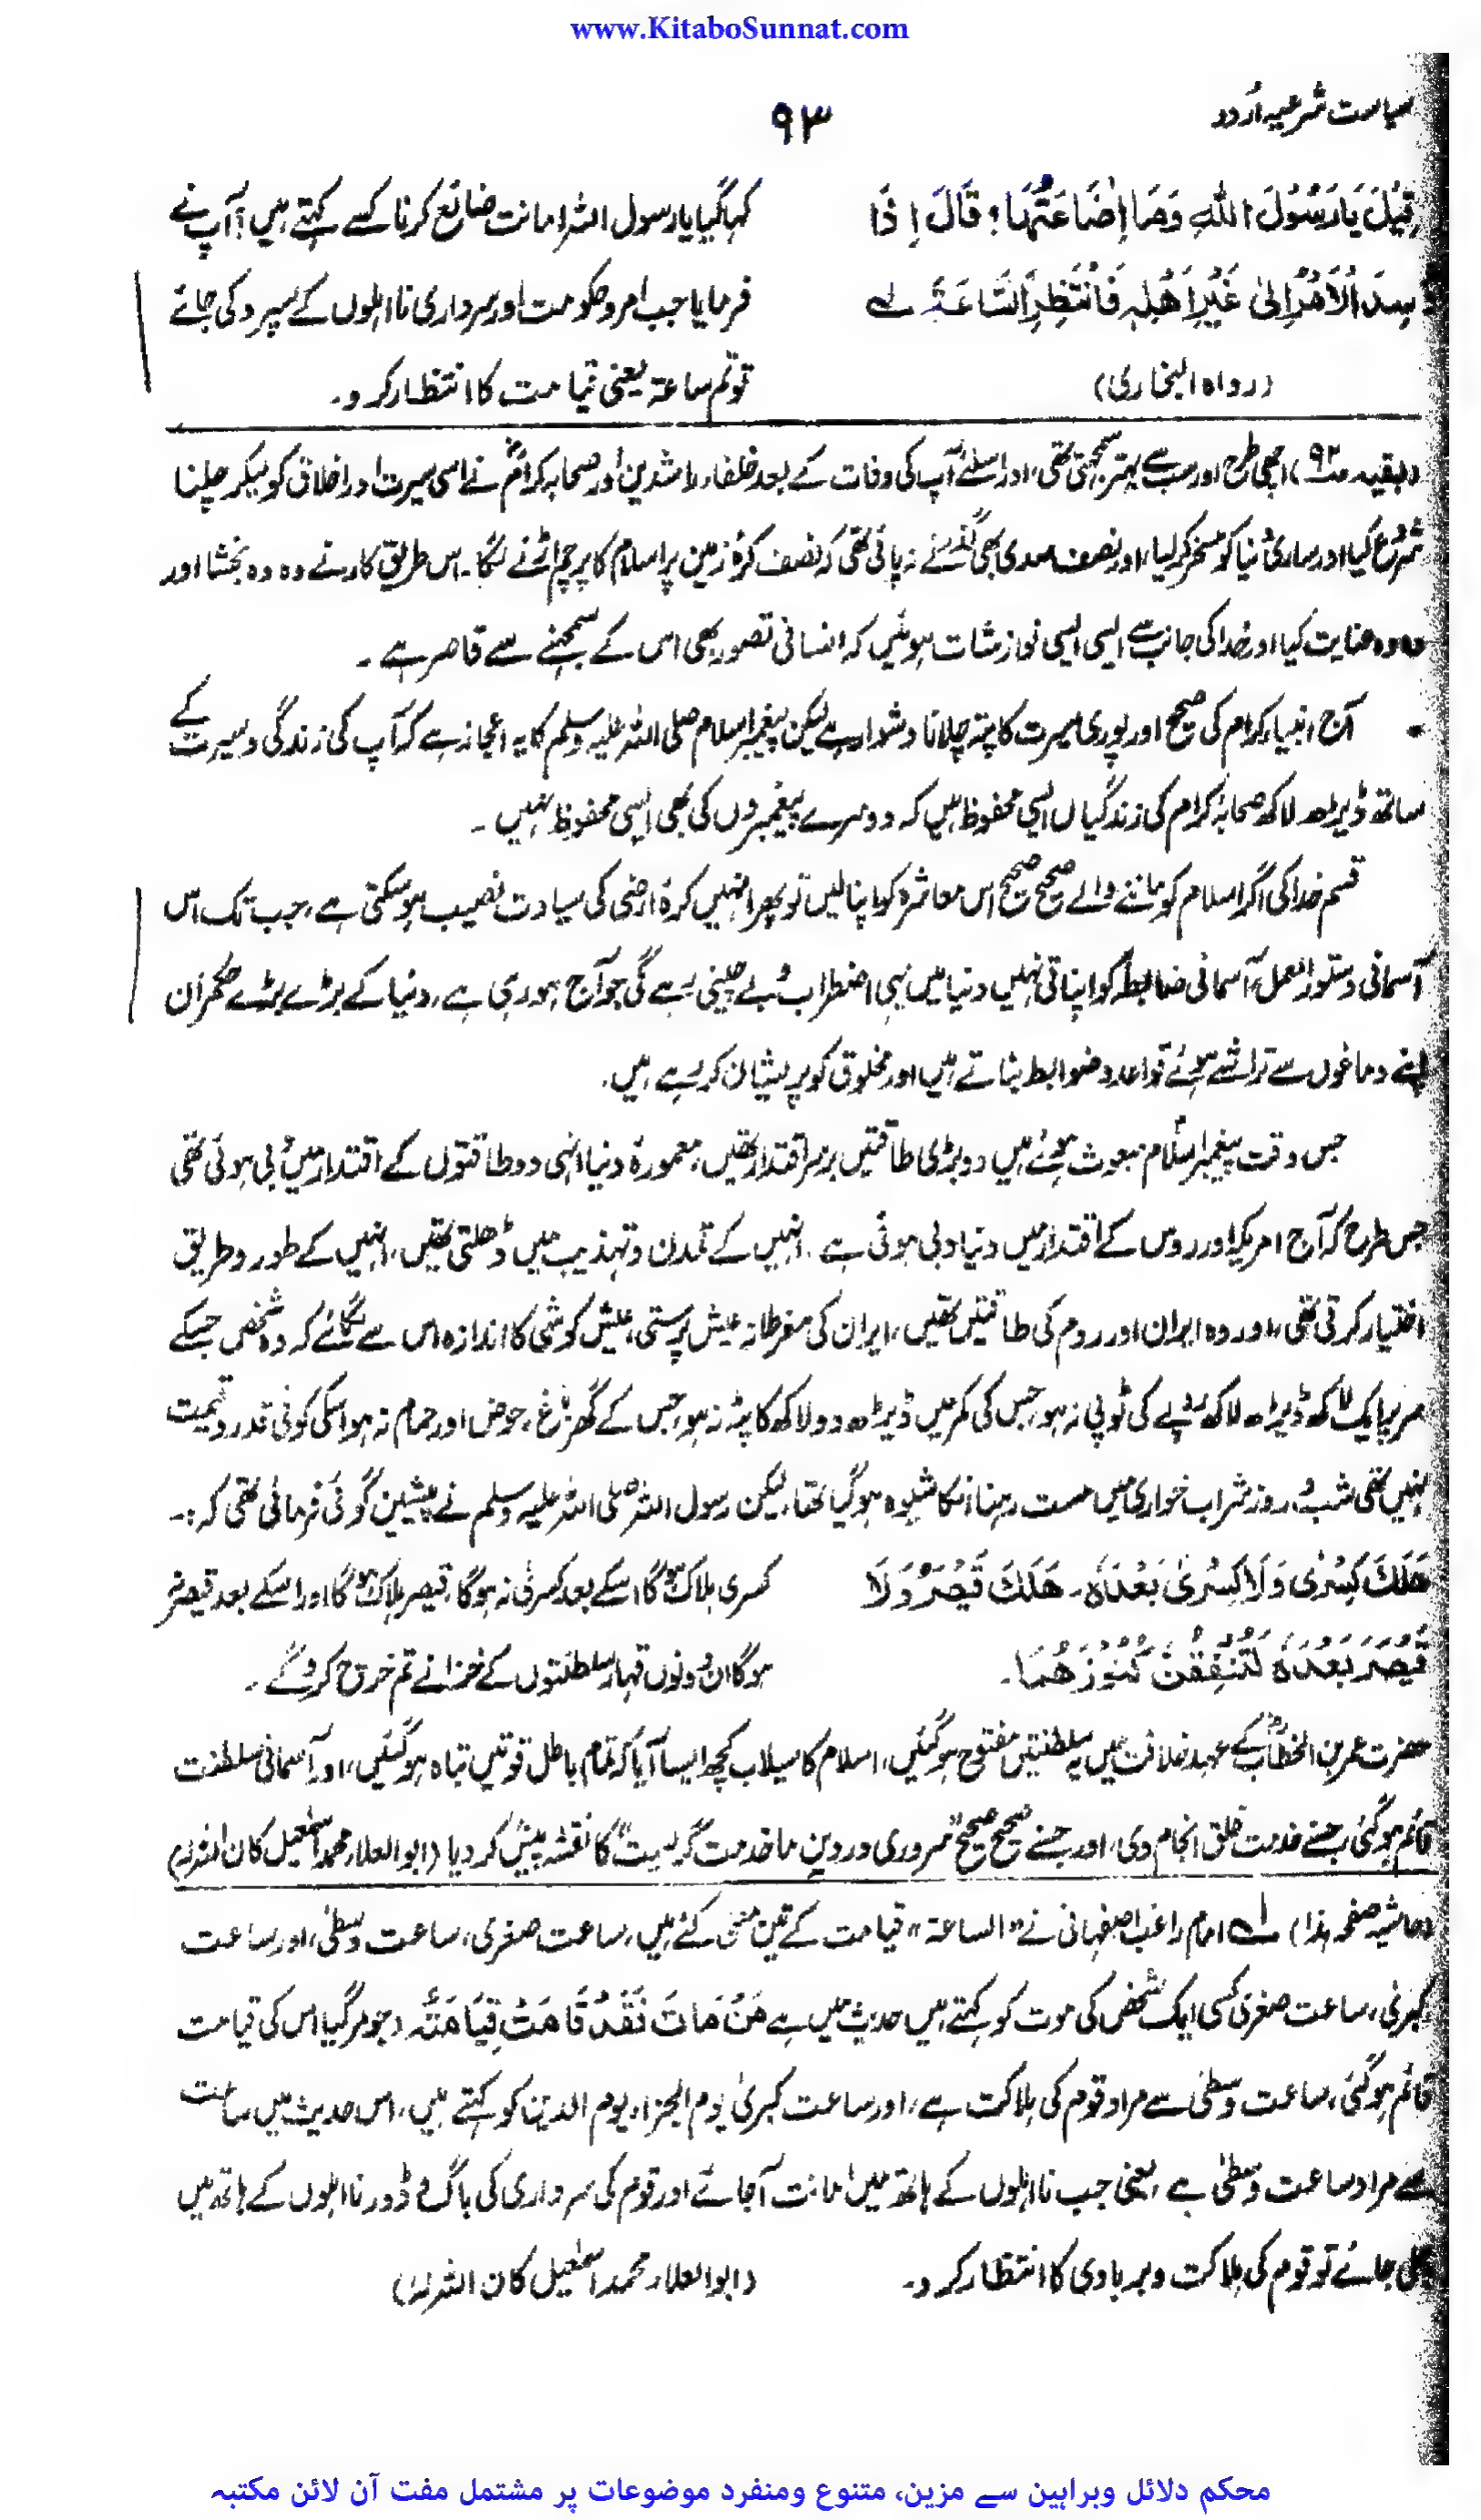 www.KitaboSunnat.com
سیاست شرعیہ اُردو
۹۳
قِیْلَ یَا رَسُوْلَ اللہِ وَمَا اِضَاعَتُہَا؟ قَالَ اِذَا
کہا گیا یا رسول اللہ امانت ضائع کرنا کسے کہتے ہیں؟ آپ نے
وُسِدَ الْاَمْرُ اِلیٰ غَیْرِ اَھْلِہٖ فَانْتَظِرِ السَّاعَۃَ لے
فرمایا جب امر و حکومت اور سرداری نااہلوں کے سپرد کی جائے
(رواہ البخاری)
تو تم ساعۃ یعنی قیامت کا انتظار کرو۔
(بقیہ صـ۹۲) اچھی طرح اور سب سے بہتر سمجھتی تھی، اور اسلئے آپ کی وفات کے بعد خلفاء راشدین اور صحابہ کرامؓ نے اسی سیرت اور اخلاق کو لیکر چلنا
شروع کیا اور ساری دنیا کو مسخر کر لیا، اور نصف صدی بھی گذرنے نہ پائی تھی کہ نصف کرۂ زمین پر اسلام کا پرچم اڑنے لگا۔ اس طریق کار نے وہ وہ بخشا اور
وہ وہ عنایت کیا اور خدا کی جانب سے ایسی ایسی نوازشات ہوئیں کہ انسانی تصور بھی اس کے سمجھنے سے قاصر ہے۔
آج انبیاء کرام کی صحیح اور پوری سیرت کا پتہ چلانا دشوار ہے لیکن پیغمبر اسلام صلی اللہ علیہ وسلم کا یہ اعجاز ہے کہ آپ کی زندگی و سیرت کے
ساتھ ڈیڑھ لاکھ صحابہ کرام کی زندگیاں ایسی محفوظ ہیں کہ دوسرے پیغمبروں کی بھی ایسی محفوظ نہیں۔
قسم خدا کی اگر اسلام کو ماننے والے صحیح صحیح اس معاشرہ کو اپنا لیں تو پھر انہیں کرۂ ارضی کی سیادت نصیب ہو سکتی ہے، جب تک اس
آسمانی دستور العمل، آسمانی ضابطہ کو اپناتی نہیں دنیا میں یہی اضطراب و بے چینی رہے گی جو آج ہو رہی ہے، دنیا کے بڑے بڑے حکمران
اپنے دماغوں سے تراشے ہوئے قواعد و ضوابط بناتے ہیں اور مخلوق کو پریشان کر رہے ہیں۔
جس وقت پیغمبر اسلام مبعوث ہوئے ہیں دو بڑی طاقتیں برسر اقتدار تھیں، معمورۂ دنیا انہی دو طاقتوں کے اقتدار میں دبی ہوئی تھی
جس طرح کہ آج امریکہ اور روس کے اقتدار میں دنیا دبی ہوئی ہے۔ انہیں کے تمدن و تہذیب میں ڈھلتی تھیں، انہیں کے طور و طریق
اختیار کرتی تھی، اور وہ ایران اور روم کی طاقتیں تھیں، ایران کی مفرطانہ عیش پرستی، عیش کوشی کا اندازہ اس سے لگائے کہ وہ شخص جسکے
سر پر ایک لاکھ ڈیڑھ لاکھ روپے کی ٹوپی نہ ہو، جس کی کمر میں ڈیڑھ دو لاکھ کا پٹہ نہ ہو، جس کے گھر باغ، حوض اور حمام نہ ہو اسکی کوئی قدر و قیمت
نہیں تھی شب و روز شراب خواری میں مست رہنا انکا شیوہ ہو گیا تھا، لیکن رسول اللہ صلی اللہ علیہ وسلم نے پیشین گوئی فرمائی تھی کہ:۔
ھَلَکَ کِسْرٰی وَلَا کِسْرٰی بَعْدَہٗ۔ ھَلَکَ قَیْصَرُ وَلَا
کسری ہلاک ہو گا اسکے بعد کسریٰ نہ ہو گا، قیصر ہلاک ہو گا اور اسکے بعد قیصر نہ
قَیْصَرَ بَعْدَہٗ لَتُنْفِقُنَّ کُنُوْزَھُمَا۔
ہو گا ان دونوں قہار سلطنتوں کے خزانے تم خرچ کرو گے۔
حضرت عمر بن الخطابؓ کے عہد خلافت میں یہ سلطنتیں مفتوح ہو گئیں، اسلام کا سیلاب کچھ ایسا آیا کہ تمام باطل قوتیں تباہ ہو گئیں، اور آسمانی سلطنت
قائم ہو گئی جسنے خدمت خلق انجام دی، اور جسنے صحیح صحیح "سروری در دین ما خدمت گریست" کا نقشہ پیش کر دیا (ابو العلاء محمد اسمٰعیل کان اللہ لہ)
(حاشیہ صفحہ ہذا) لے امام راغب اصفہانی نے "الساعۃ" قیامت کے تین معنی کئے ہیں، ساعت صغری، ساعت وسطیٰ، اور ساعت
کبریٰ، ساعت صغریٰ کسی ایک شخص کی موت کو کہتے ہیں حدیث میں ہے مَنْ مَاتَ فَقَدْ قَامَتْ قِیَامَتُہ (جو مر گیا اس کی قیامت
قائم ہو گئی، ساعت وسطیٰ سے مراد قوم کی ہلاکت ہے، اور ساعت کبریٰ یوم الجزاء، یوم الدین کو کہتے ہیں، اس حدیث میں ساعت
سے مراد ساعت وسطیٰ ہے، یعنی جب نااہلوں کے ہاتھ میں امانت آ جائے اور قوم کی سرداری کی باگ ڈور نااہلوں کے ہاتھ میں
چلی جائے تو قوم کی ہلاکت و بربادی کا انتظار کرو۔
(ابو العلاء محمد اسمٰعیل کان اللہ لہ)
محکم دلائل وبراہین سے مزین، متنوع ومنفرد موضوعات پر مشتمل مفت آن لائن مکتبہ